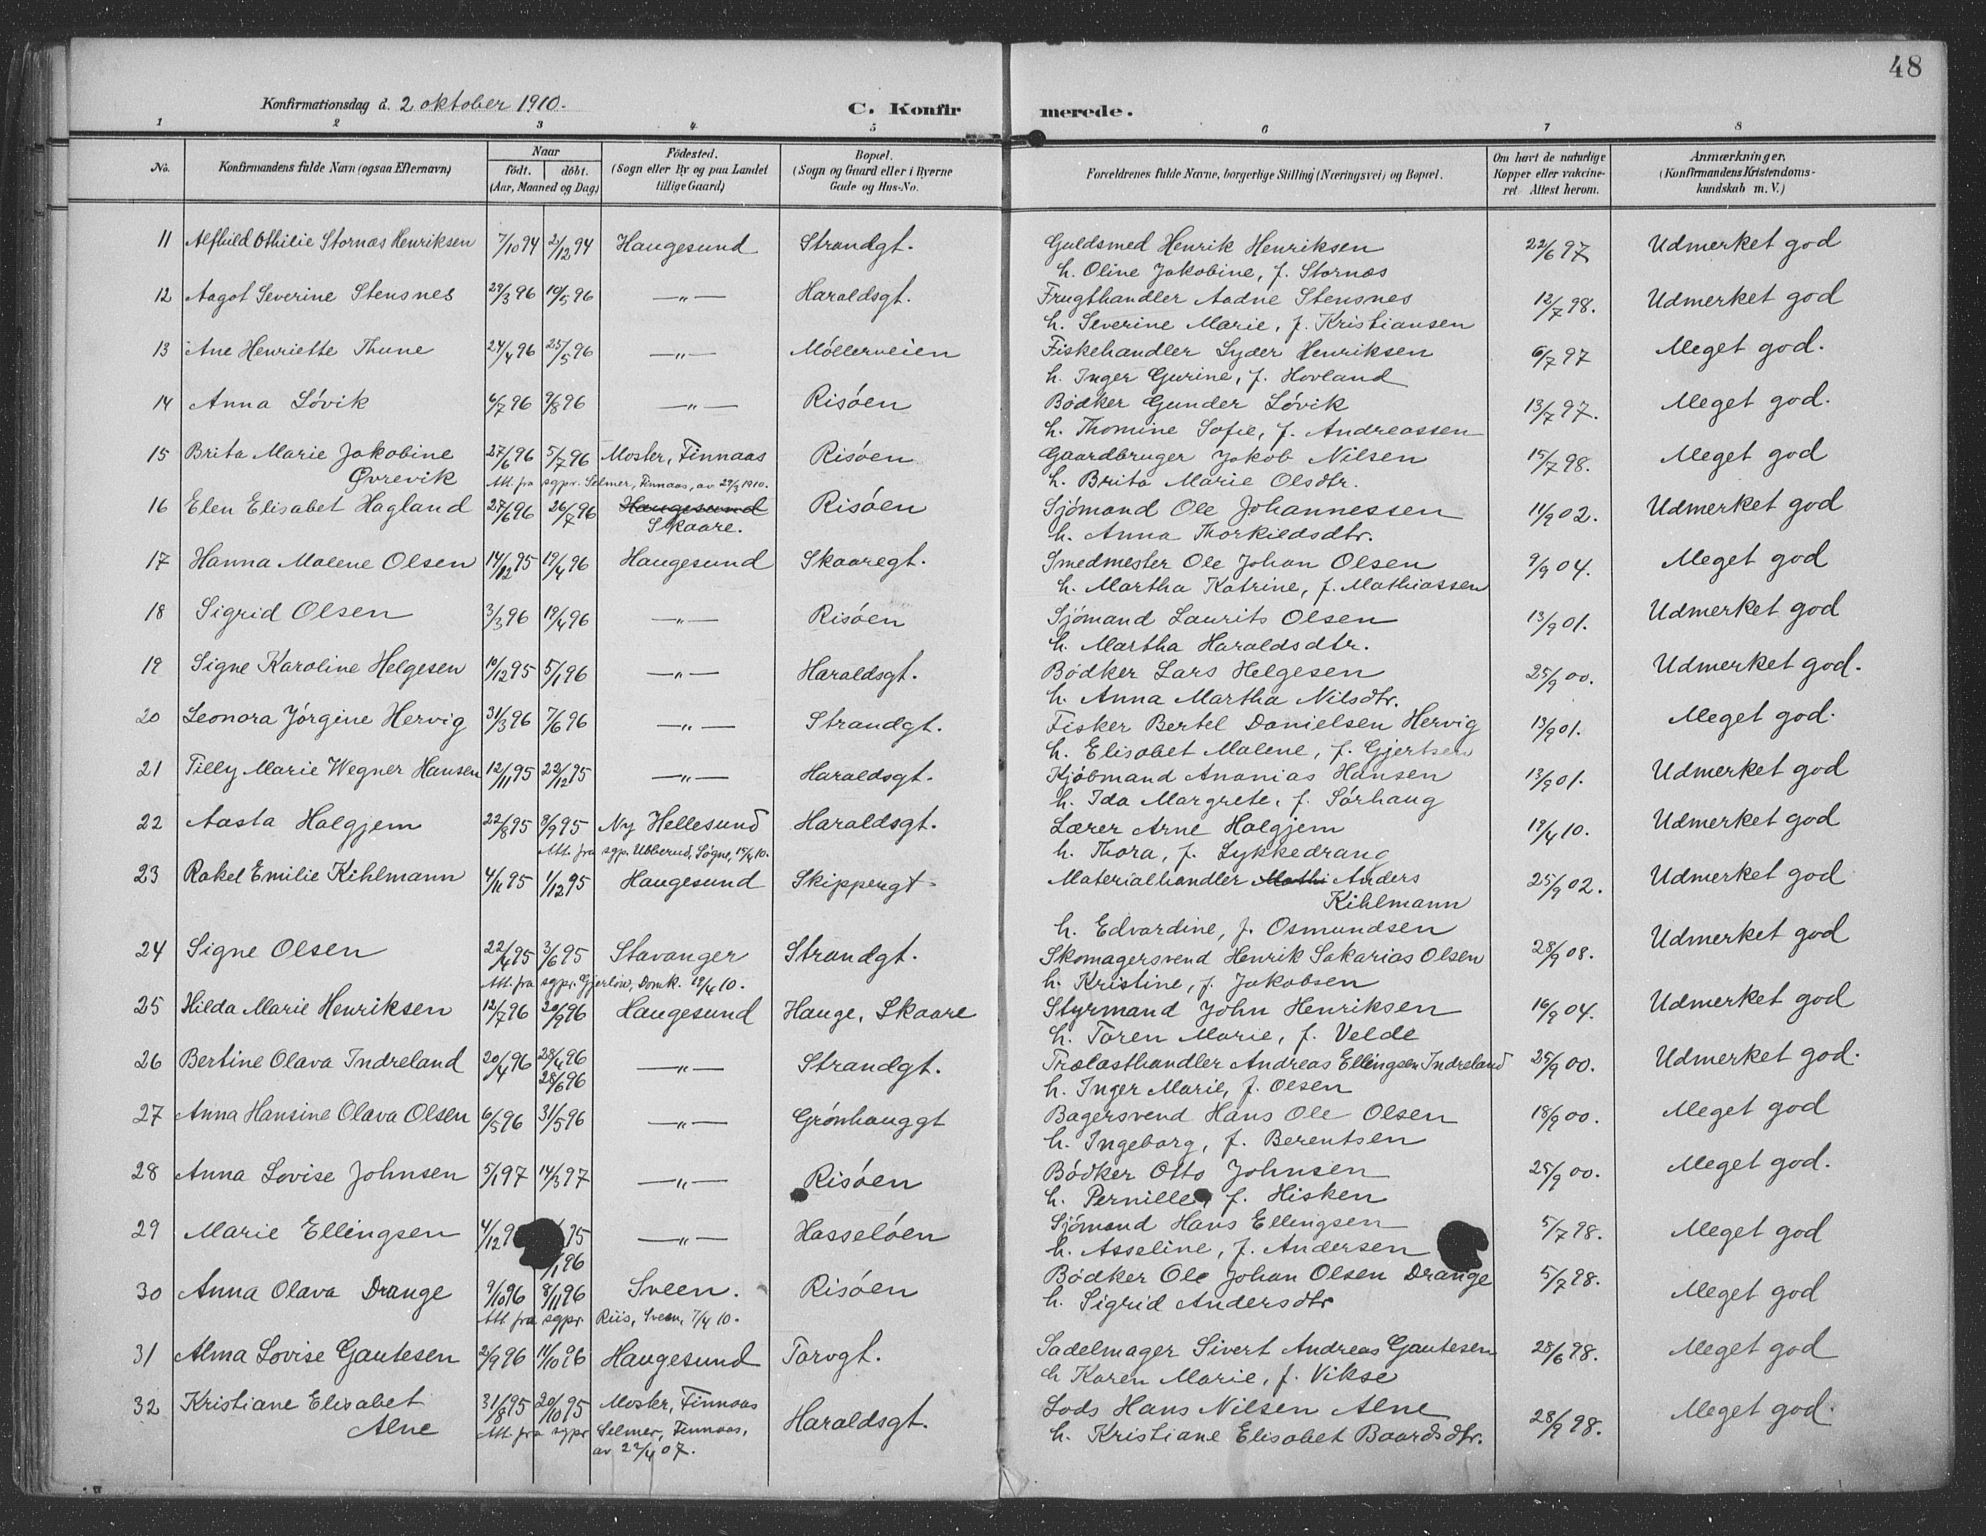 48
Konfirmationsdag d. 2 oktober 1910.
C. Konfirmerede.
1 2 3 4 5 6 7 8
No. Konfirmandens fulde Navn (ogsaa Efternavn) Naar født. døbt. (Aar, Maaned og Dag) Födested. (Sogn eller By og paa Landet tillige Gaard) Bopæl. (Sogn og Gaard eller i Byerne Gade og Hus-No. Forældrenes fulde Navne, borgerlige Stilling (Næringsvei) og Bopæl. Om havt de naturlige Kopper eller vakcineret. Attest herom. Anmærkninger. (Konfirmandens Kristendomskundskab m. V.)
11 Alfhild Othilie Stornæs Henriksen 7/10 94 2/12 94 Haugesund Strandgt. Guldsmed Henrik Henriksen 22/6 97 Udmerket god
h. Oline Jakobine, f. Stornæs
12 Aagot Severine Stensnes 29/3 96 10/5 96 —"— Haraldsgt. Frugthandler Aadne Stensnes 12/7 98. Udmerket god
h. Severine Marie, f. Kristiansen
13 Ane Henriette Thune 24/4 96 25/5 96 —"— Möllerveien Fiskehandler Syder Henriksen 6/7 97 Meget god.
h. Inger Gurine, f. Hovland
14 Anna Lövik 6/7 96 9/8 96 —"— Risöen Bödker Gunder Lövik 13/7 97. Meget god.
h. Thomine Sofie, f. Andreassen
15 Brita Marie Jakobine 27/6 96 5/7 96 Moster, Finnaas Risöen Gaardbruger Jakob Nilsen 15/7 98. Meget god
Øvrevik Att. fra sgpr. Selmer, Finnaas, av 29/3 1910. h. Brita Marie Olsdtr.
16 Elen Elisabet Hagland 27/6 96 26/7 96 Haugesund Risöen Sjömand Ole Johannessen 11/9 02. Udmerket god
Skaare. h. Anna Thorkildsdtr.
17 Hanna Malene Olsen 14/12 95 19/4 96 Haugesund Skaaregt. Smedmester Ole Johan Olsen 9/9 04. Meget god
h. Martha Katrine, f. Mathiassen
18 Sigrid Olsen 3/3 96 19/4 96 —"— Risöen Sjömand Laurits Olsen 13/9 01. Udmerket god
h. Martha Haraldsdtr.
19 Signe Karoline Helgesen 10/12 95 5/1 96 —"— Haraldsgt. Bödker Lars Helgesen 25/9 00. Udmerket god.
h. Anna Martha Nilsdtr.
20 Leonora Jörgine Hervig 31/3 96 7/6 96 —"— Strandgt. Fisker Bertel Danielsen Hervig 13/9 01. Meget god.
h. Elisabet Malene, f. Gjertsen
21 Tilly Marie Wegner Hansen 12/11 95 22/12 95 —"— Haraldsgt. Kjöbmand Ananias Hansen 13/9 01. Udmerket god
h. Ida Margrete, f. Sörhaug
22 Aasta Halgjem 22/8 95 8/9 95 Ny Hellesund Haraldsgt. Lærer Arne Halgjem 19/4 10. Udmerket god
Att. fra sgpr. Ubberud, Søgne, 15/4 10. h. Thora, f. Lykkedrang
23 Rakel Emilie Kihlmann 4/11 95 1/12 95 Haugesund Skippergt. Materialhandler Mathi Anders 25/9 02. Udmerket god
Kihlmann
h. Edvardine, f. Osmundsen
24 Signe Olsen 22/4 95 3/6 95 Stavanger Strandgt. Skomagersvend Henrik Sakarias Olsen 28/9 08. Udmerket god
Att. fra sgpr. Gjerlöw, Domk. 19/4 10. h. Kristine, f. Jakobsen
25 Hilda Marie Henriksen 12/7 96 20/9 96 Haugesund Hauge, Skaare Styrmand John Henriksen 16/9 04. Udmerket god
h. Toren Marie, f. Velde
26 Bertine Olava Indreland 20/4 96 23/4 96 —"— Strandgt. Trælasthandler Andreas Ellingsen Indreland 25/9 00. Udmerket god.
28/6 96 h. Inger Marie, f. Olsen
27 Anna Hansine Olava Olsen 6/5 96 31/5 96 —"— Grönhauggt Bagersvend Hans Ole Olsen 18/9 00. Meget god
h. Ingeborg, f. Berentsen
28 Anna Lovise Johnsen 5/1 97 14/3 97 —"— Risöen Bödker Otto Johnsen 25/9 00. Meget god.
h. Pernille, f. Hisken
29 Marie Ellingsen 4/12 95 —"— Hasselöen Sjömand Hans Ellingsen 5/7 98. Meget god
/1 96 h. Asseline, f. Andersen
30 Anna Olava Drange 9/10 96 8/11 96 Sveen. Risöen Bödker Ole Johan Olsen Drange 5/7 98. Meget god
Att. fra sgpr Riis, Sveen, 7/4 10. h. Sigrid Andersdtr
31 Alma Lovise Gautesen 2/9 96 11/10 96 Haugesund Torvgt. Sadelmager Sivert Andreas Gautesen 28/6 98. Meget god
h Karen Marie, f. Vikse
32 Kristiane Elisabet 31/8 95 20/10 95 Moster, Finnaas Haraldsgt. Lods Hans Nilsen Alne 28/9 98. Meget god.
Alne Att. fra sgpr Selmer, Finnaas, h. Kristiane Elisabet Baardsdtr.
av 22/4 07.